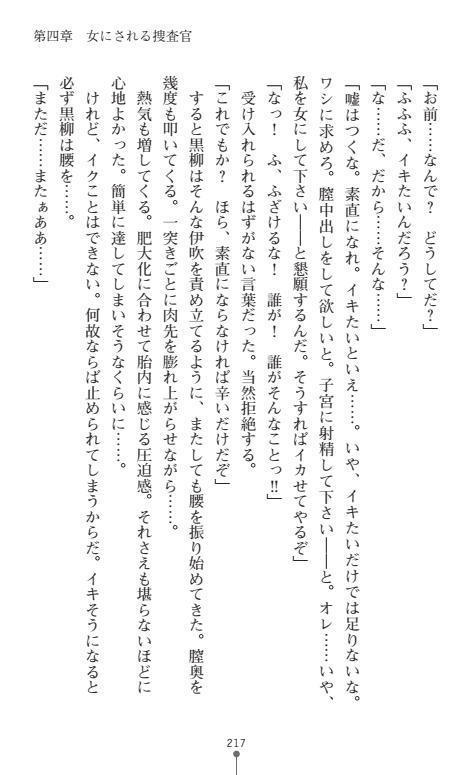 第四章　女にされる捜査官
「お前……なんで？　どうしてだ？」
「ふふふ、イキたいんだろう？」
「な……だ、だから……そんな……」
「嘘はつくな。素直になれ。イキたいといえ……。いや、イキたいだけでは足りないな。
ワシに求めろ。膣中出しをして欲しいと。子宮に射精して下さい――と。オレ……いや、
私を女にして下さい――と懇願するんだ。そうすればイカせてやるぞ」
「なっ！　ふ、ふざけるな！　誰が！　誰がそんなことっ‼」
　受け入れられるはずがない言葉だった。当然拒絶する。
「これでもか？　ほら、素直にならなければ辛いだけだぞ」
　すると黒柳はそんな伊吹を責め立てるように、またしても腰を振り始めてきた。膣奥を
幾度も叩いてくる。一突きごとに肉先を膨れ上がらせながら……。
　熱気も増してくる。肥大化に合わせて胎内に感じる圧迫感。それさえも堪らないほどに
心地よかった。簡単に達してしまいそうなくらいに……。
　けれど、イクことはできない。何故ならば止められてしまうからだ。イキそうになると
必ず黒柳は腰を……。
「まただ……またぁああ……」
217